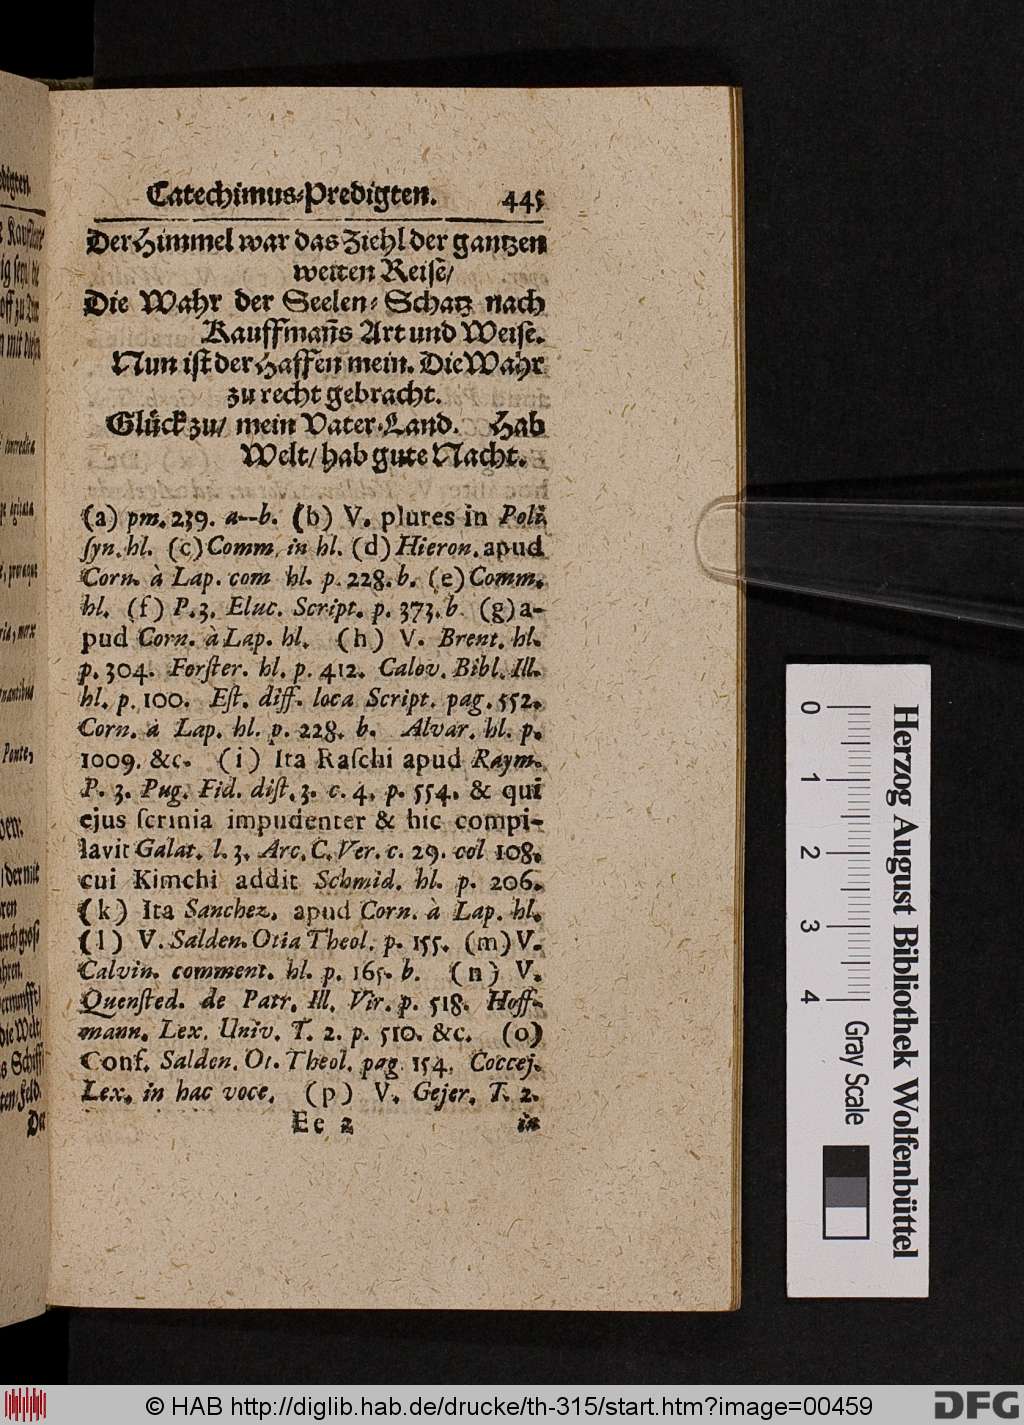 Catechimus-Predigten. 445
Der Himmel war das Ziehl der gantzen
weiten Reise/
Die Wahr der Seelen-Schatz nach
Kauffmañs Art und Weise.
Nun ist der Haffen mein. Die Wahr
zu recht gebracht.
Glück zu/ mein Vater-Land. Hab
Welt/ hab gute Nacht.
(a) pm. 239. a--b. (b) V. plures in Poli
ſyn. hl. (c) Comm. in hl. (d) Hieron. apud
Corn. à Lap. com hl. p. 228. b. (e) Comm.
hl. (f) P. 3. Eluc. Script. p. 373. b. (g) a-
pud Corn. à Lap. hl. (h) V. Brent. hl.
p. 304. Forſter. hl. p. 412. Calov. Bibl. Ill.
hl. p. 100. Eſt. diff. loca Script. pag. 552.
Corn. à Lap. hl. p. 228. b. Alvar. hl. p.
1009. &c. (i) Ita Raſchi apud Raym.
P. 3. Pug. Fid. diſt. 3. c. 4. p. 554. & qui
ejus ſcrinia impudenter & hic compi-
lavit Galat. l. 3. Arc. C. Ver. c. 29. col 108.
cui Kimchi addit Schmid. hl. p. 206.
(k) Ita Sanchez. apud Corn. à Lap. hl.
(l) V. Salden. Otia Theol. p. 155. (m) V.
Calvin. comment. hl. p. 165. b. (n) V.
Quenſted. de Patr. Ill. Vir. p. 518. Hoff-
mann. Lex. Univ. T. 2. p. 510. &c. (o)
Conf. Salden. Ot. Theol. pag. 154. Coccej.
Lex. in hac voce. (p) V. Gejer. T. 2.
Ee 2 in
digten.
Der
0 1 2 3 4
Gray Scale
Herzog August Bibliothek Wolfenbüttel
© HAB http://diglib.hab.de/drucke/th-315/start.htm?image=00459
DFG